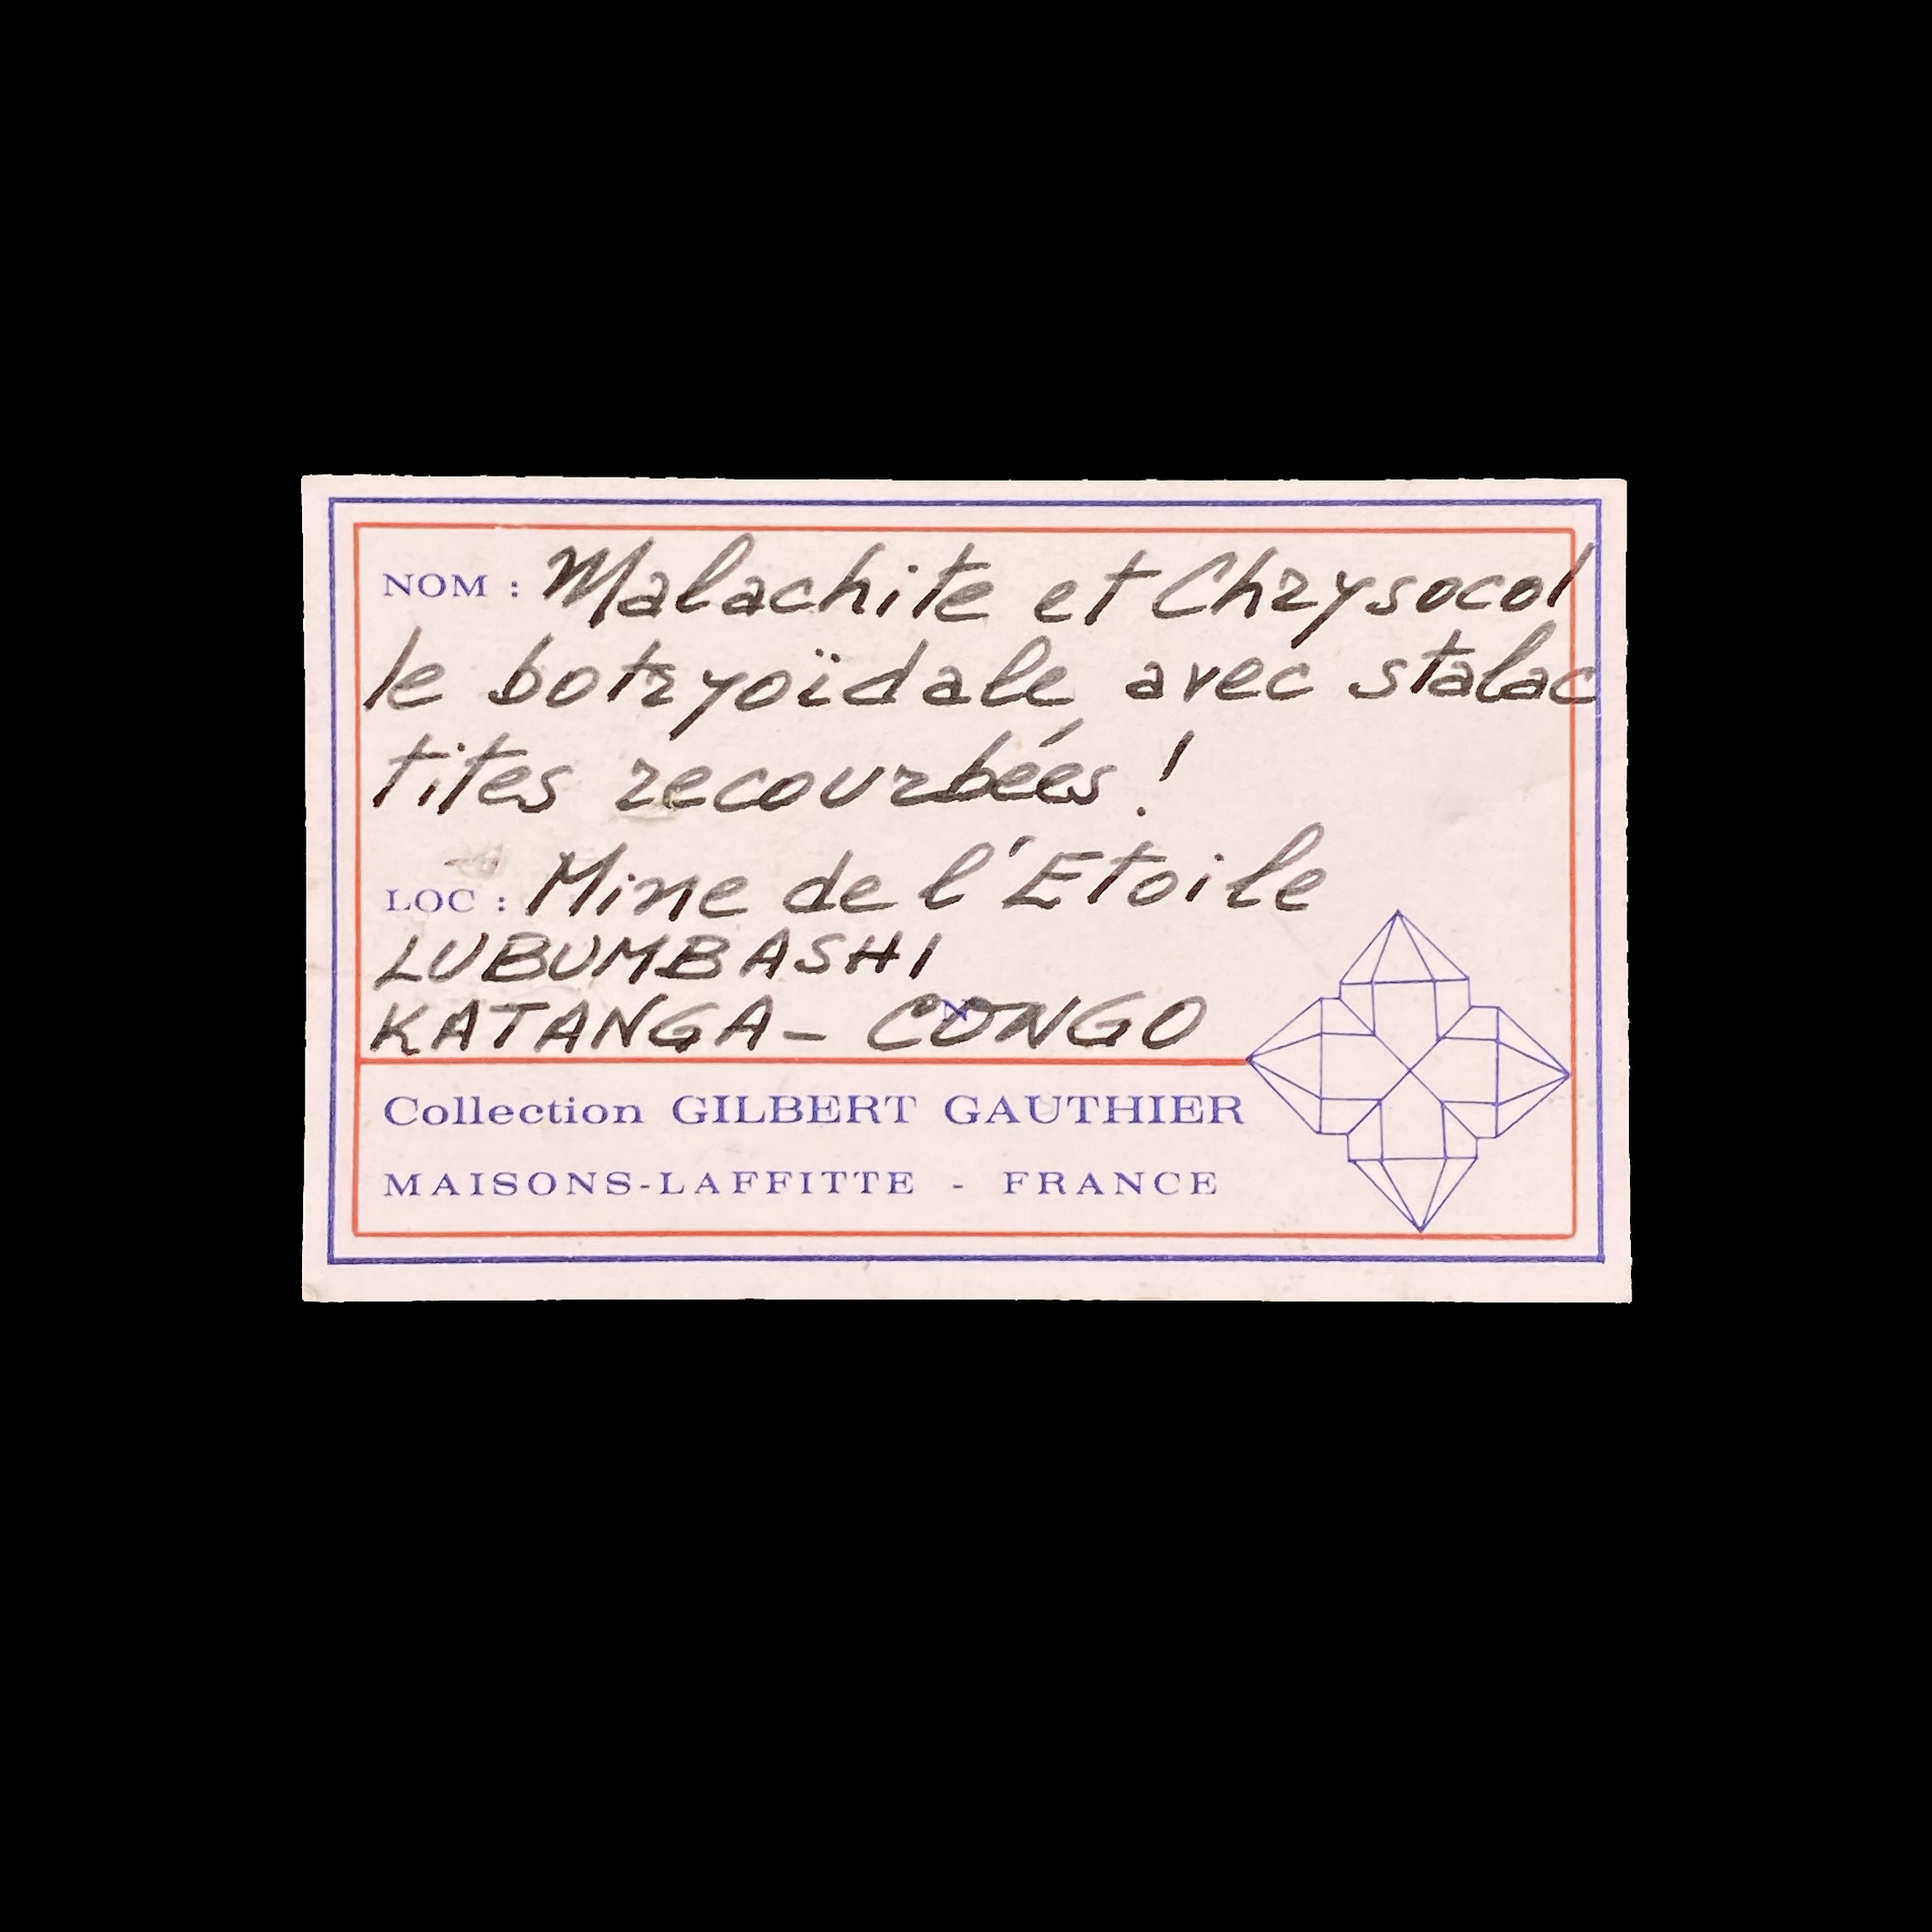 NOM : Malachite et Chrysocol
le botryoïdale avec stalac
tites recourbées !
LOC : Mine de l'Etoile
LUBUMBASHI
KATANGA - CONGO
Collection GILBERT GAUTHIER
MAISONS-LAFFITTE - FRANCE